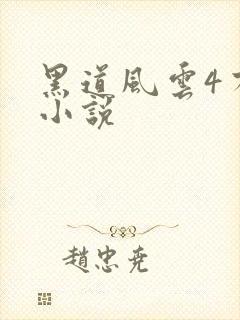 黑道風雲4
小說
趙忠堯